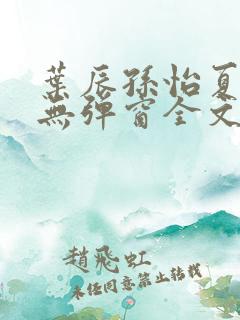 葉辰孫怡夏
無彈窗全文
趙飛虹
未任同意禁止轉載